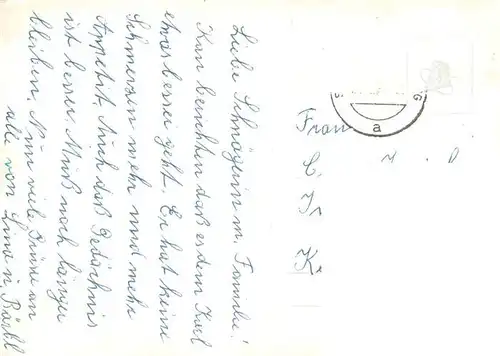 Liebe Schwägerin m. Familie!
Kan berichten daß es dem Karl
etwas besser geht. Er hat keine
Schmerzen mehr und mehr
Appetit. Auch das Gedächnis
ist besser. Muß noch länger
bleiben. Nun viele Grüße an
alle von Lina u. Bärbl
Frau
C.
K
a